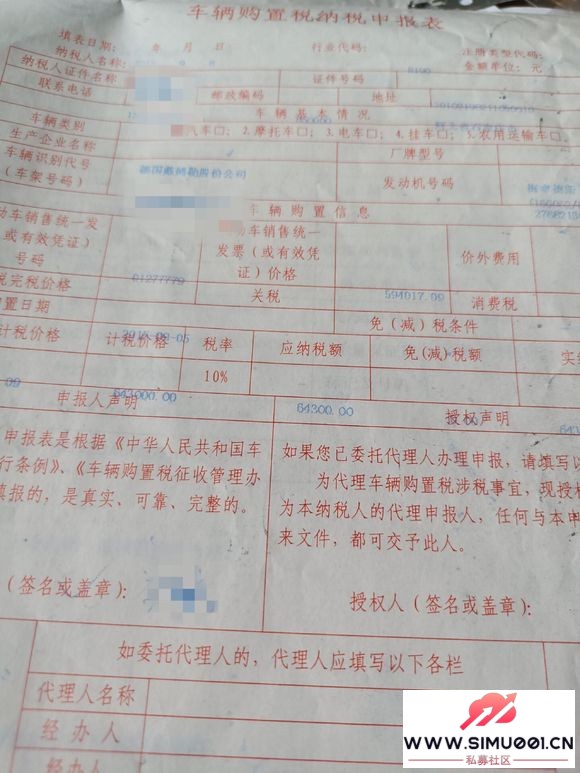 车辆购置税纳税申报表
填表日期： 年 月 日 行业代码： 注册类型代码：
纳税人名称： 金额单位：元
纳税人证件名称 证件号码
联系电话 邮政编码 地址
车辆基本情况
车辆类别 汽车口；2.摩托车口；3.电车口；4.挂车口；5.农用运输车口
生产企业名称 厂牌型号
车辆识别代号（车架号码） 股份公司 发动机号码
车辆购置信息
动车销售统一发（或有效凭证）号码 动车销售统一发票（或有效凭证）价格 价外费用
01277779
税完税价格 关税 594017.09 消费税
置日期 免（减）税条件
计税价格 计税价格 税率 应纳税额 免（减）税额
10%
09 643000.00 64300.00
申报人声明 授权声明
申报表是根据《中华人民共和国车
行条例》、《车辆购置税征收管理办
填报的，是真实、可靠、完整的。
如果您已委托代理人办理申报，请填写以
为代理车辆购置税涉税事宜，现授权
为本纳税人的代理申报人，任何与本申
来文件，都可交予此人。
（签名或盖章）： 授权人（签名或盖章）：
如委托代理人的，代理人应填写以下各栏
代理人名称
经办人
WWW.SIMU001.CN
私募社区